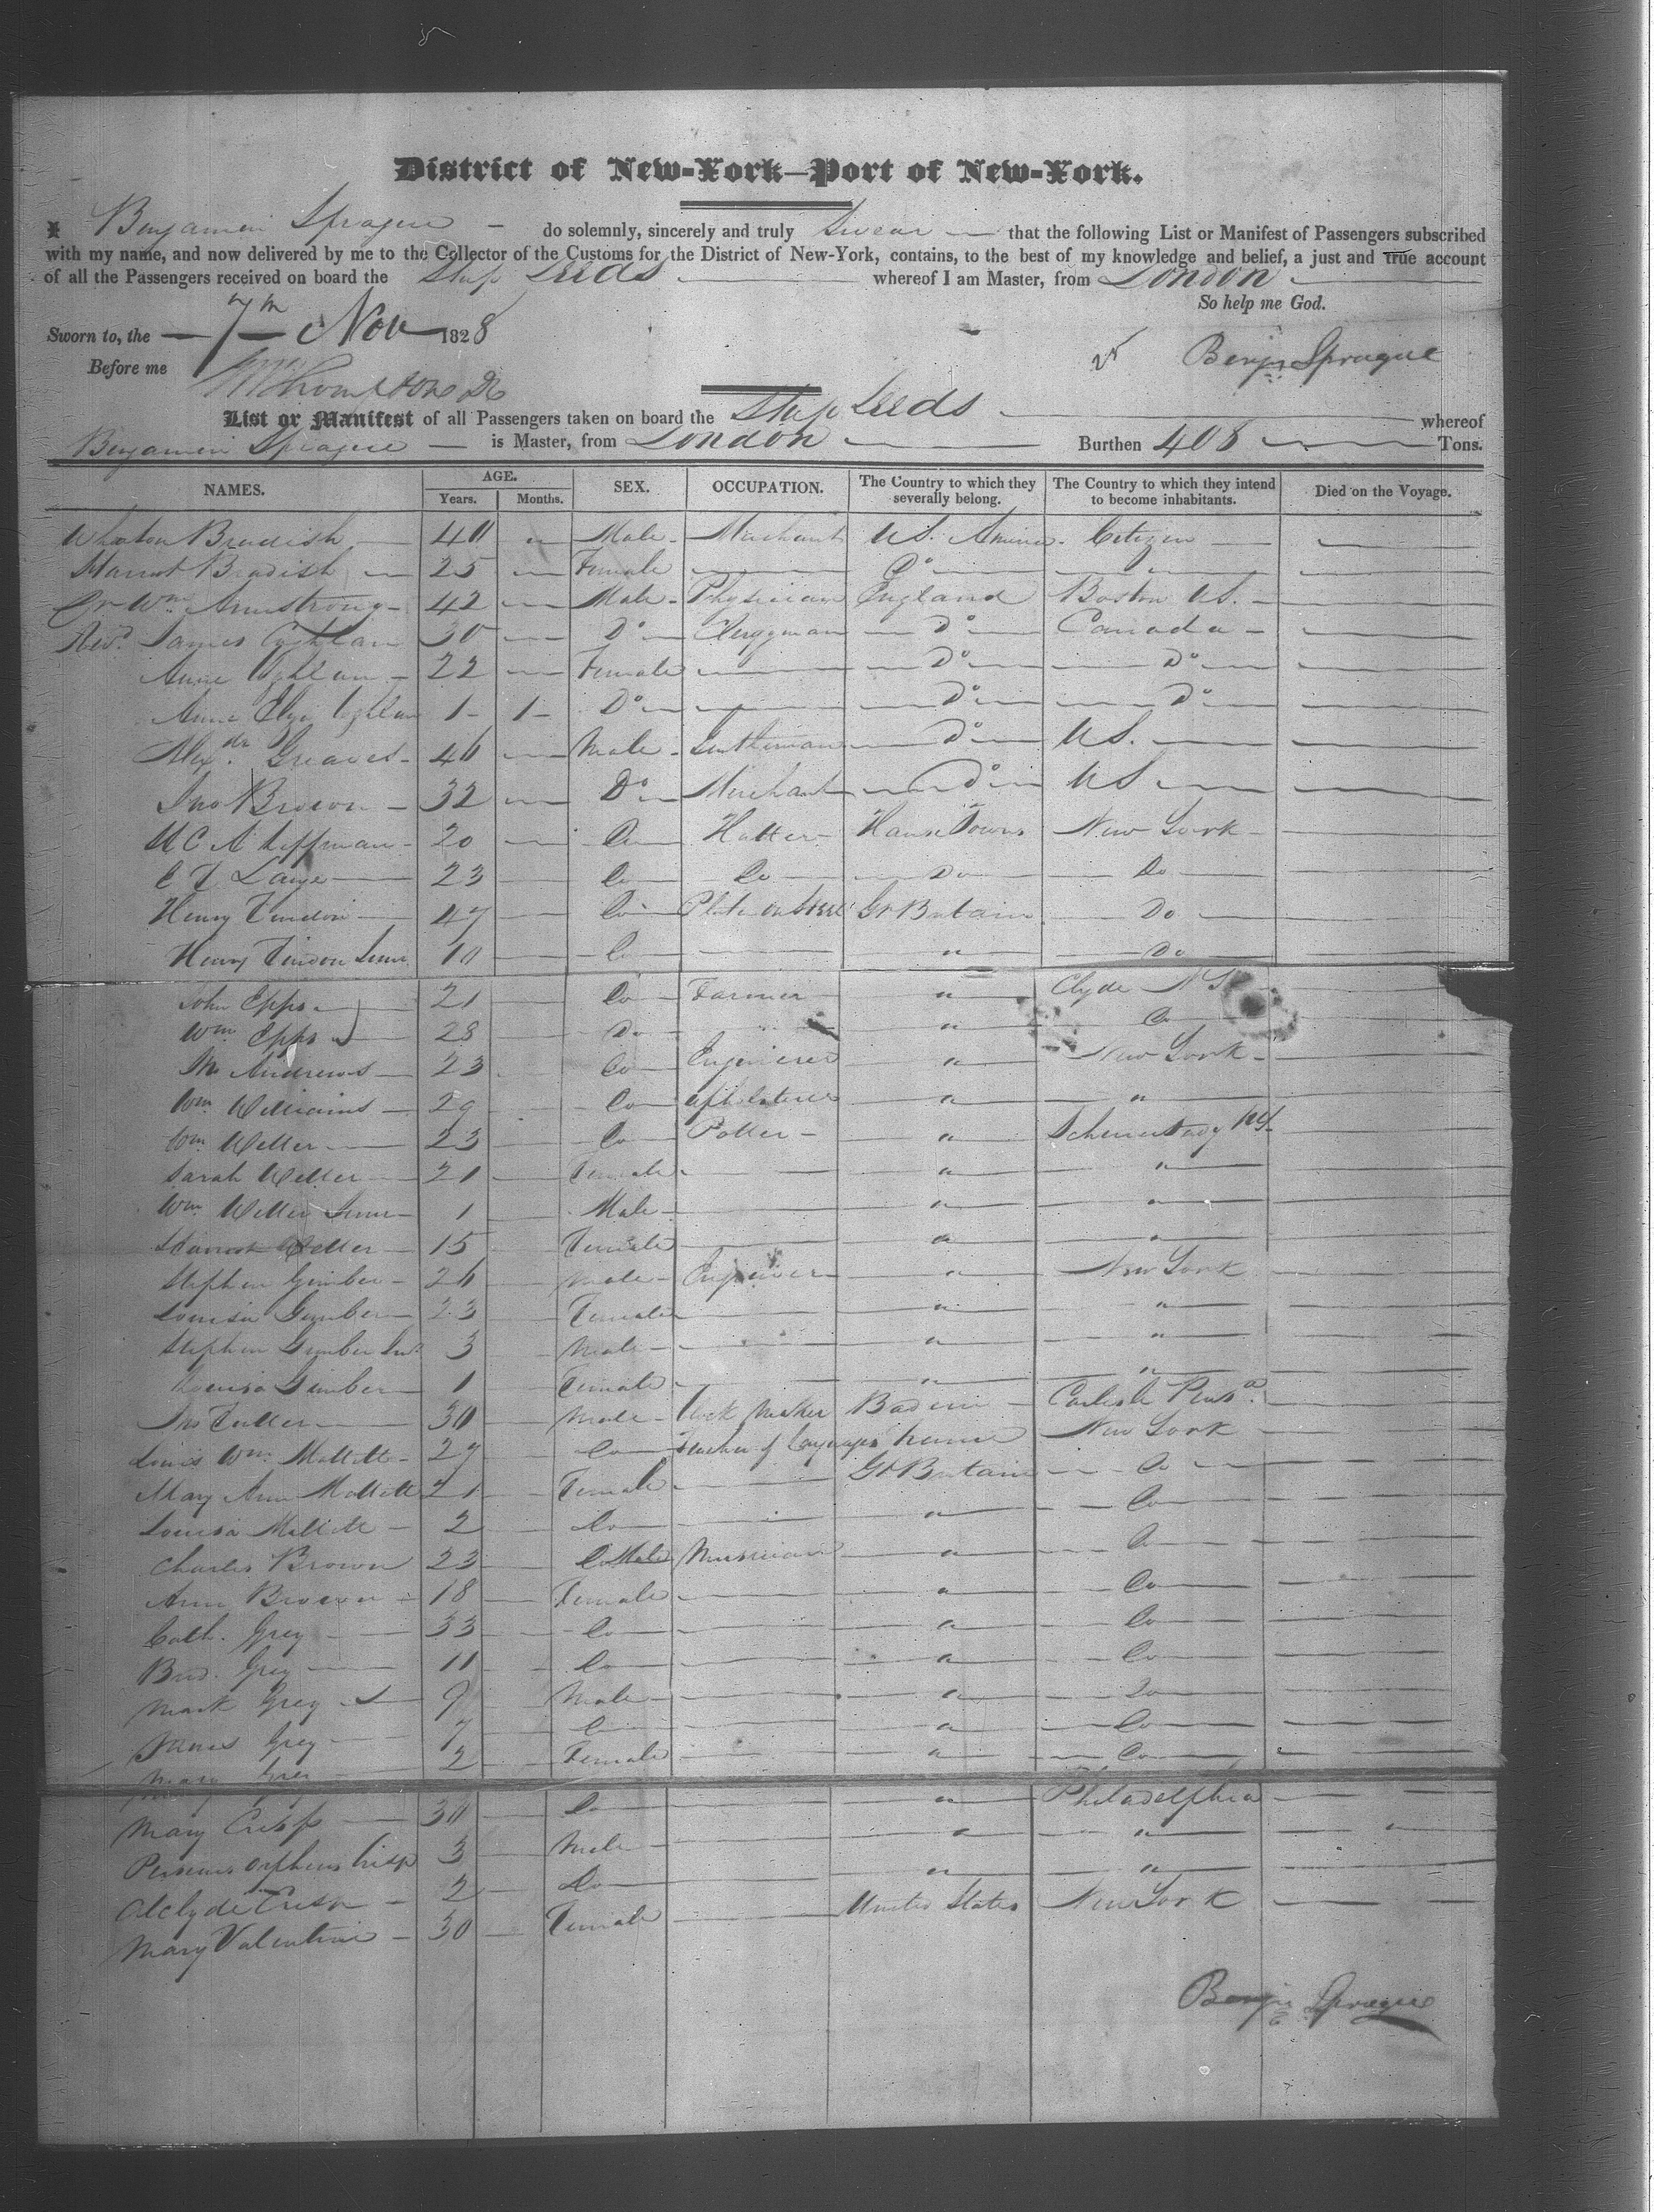 District of New-York—Port of New-York.
I Benjamin Sprague do solemnly, sincerely and truly Swear that the following List or Manifest of Passengers subscribed
with my name, and now delivered by me to the Collector of the Customs for the District of New-York, contains, to the best of my knowledge and belief, a just and true account
of all the Passengers received on board the Ship Leeds whereof I am Master, from London
So help me God.
Sworn to, the 7th Nov 1828
Before me
Benjn Sprague
List or Manifest of all Passengers taken on board the Ship Leeds whereof
Benjamin Sprague is Master, from London Burthen 408 Tons.
NAMES. AGE. Years. Months. SEX. OCCUPATION. The Country to which they severally belong. The Country to which they intend to become inhabitants. Died on the Voyage.
Bradish 40 " Male Merchant US. America Citizen
Harriet Bradish 25 Female Do
Dr Wm Armstrong 42 Male Physician England Boston US.
Revd. James Coghlan 30 Do Clergyman Do Canada
Anne Coghlan 22 Female Do Do
Anne Eliza Coghlan 1 1 Do Do Do
Alexdr. Greaves 46 Male Gentleman Do US.
Jno Brown 32 Do Merchant Do US
20 Do Hatter Hanse Towns New York
C F Lange 23 Do Do Do Do
Henry Tindon 47 Do Gt Britain Do
Henry Tindon Junr 10 Do " Do
John Epps 21 Do Farmer " Clyde NY
Wm Epps 28 Do " Do
M Andrews 23 Do Engineer " New York
Wm Williams 29 Do Upholsterer " "
Wm Weller 23 Do Potter " Schenectady NY
Sarah Weller 21 Female " "
Wm Weller Junr 1 Male " "
Harriet Weller 15 Female " "
Stephen Gimber 26 Male Engraver " New York
Louisa Gimber 23 Female " "
Stephen Gimber Junr 3 Male " "
Louisa Gimber 1 Female " "
Jno Fuller 30 Male Clock Maker Baden Carlisle Penna.
Louis Wm. Mollett 29 Do Teacher of Languages France New York
Mary Ann Mollett 21 Female Gt Britain Do
Louisa Mollett 2 Do " Do
Charles Brown 23 Do Male Musician " Do
Ann Brown 18 Female " Do
Cath. Grey 33 Do " Do
Grey 11 Do " Do
Mark Grey 9 Male " Do
James Grey 7 Do " Do
Mary Grey 2 Female " Do
Mary Crisp 30 Do " Philadelphia
Perseus Orpheus Crisp 3 Male " "
Alclyde Crisp 2 Do " "
Mary Valentine 30 Female United States New York
Benjn Sprague